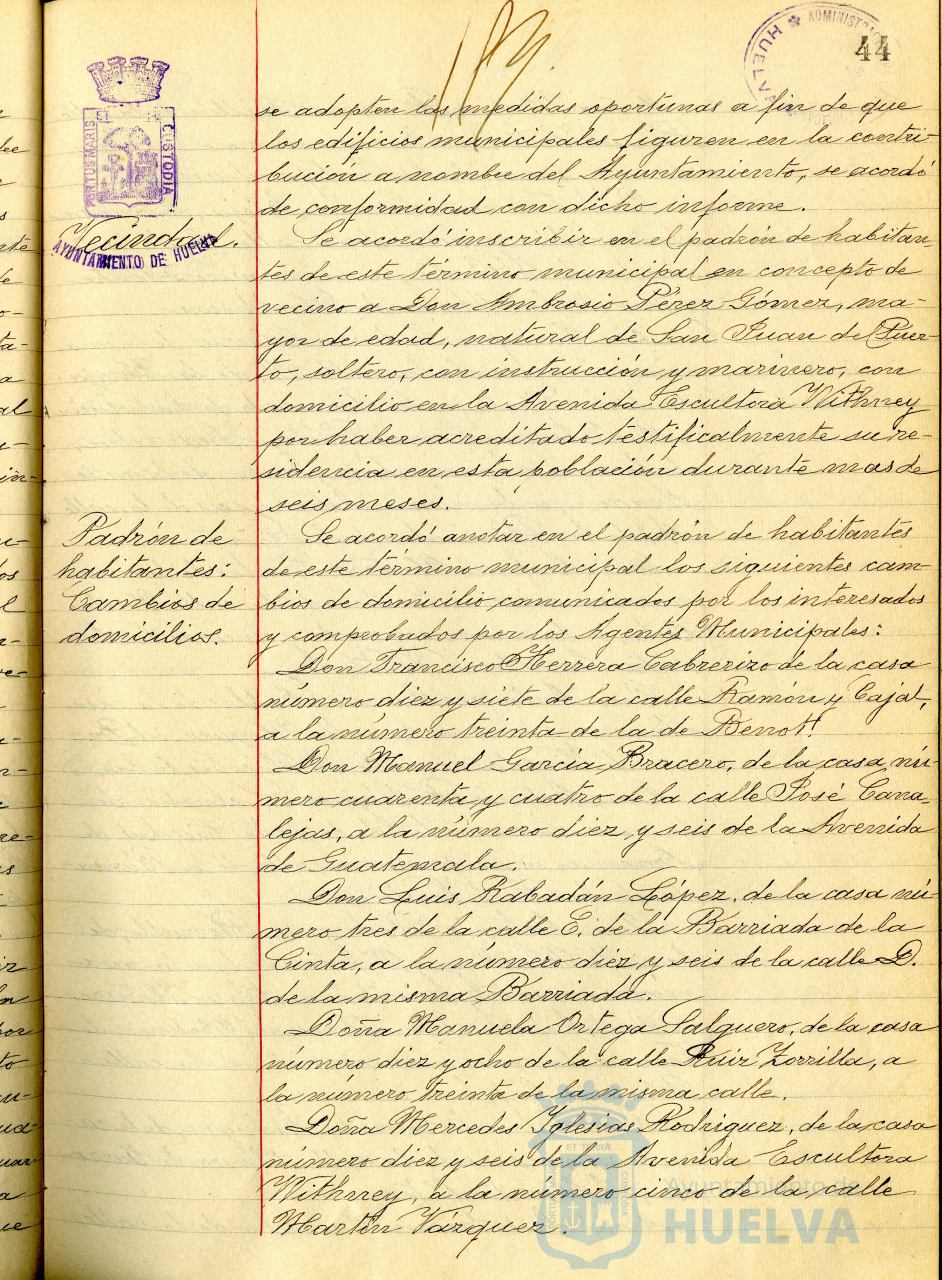 113.
ADMINISTRAC
HUELVA
44
PORTUS MARIS
CUSTODIA
AYUNTAMIENTO DE HUELVA
se adopten las medidas oportunas a fin de que
los edificios municipales figuren en la contri-
bución a nombre del Ayuntamiento, se acordó
de conformidad con dicho informe.
Vecindad.
Se acordó inscribir en el padrón de habitan-
tes de este término municipal en concepto de
vecino a Don Ambrosio Pérez Gómez, ma-
yor de edad, natural de San Juan del Puer-
to, soltero, con instrucción y marinero, con
domicilio en la Avenida Escultora Withney
por haber acreditado testificalmente su re-
sidencia en esta población durante mas de
seis meses.
Padrón de
habitantes:
Cambios de
domicilios.
Se acordó anotar en el padrón de habitantes
de este término municipal los siguientes cam-
bios de domicilio comunicados por los interesados
y comprobados por los Agentes Municipales:
Don Francisco Herrera Cabrerizo de la casa
número diez y siete de la calle Ramón y Cajal,
a la número treinta de la de Berrot!
Don Manuel García Bracero, de la casa nú-
mero cuarenta y cuatro de la calle José Cana-
lejas, a la número diez y seis de la Avenida
de Guatemala.
Don Luis Rabadán López, de la casa nú-
mero tres de la calle E. de la Barriada de la
Cinta, a la número diez y seis de la calle D.
de la misma Barriada.
Doña Manuela Ortega Salguero, de la casa
número diez y ocho de la calle Ruiz Zorrilla, a
la número treinta de la misma calle.
Doña Mercedes Iglesias Rodríguez, de la casa
número diez y seis de la Avenida Escultora
Withney, a la número cinco de la calle
Martín Vázquez.
Ayuntamiento de
HUELVA